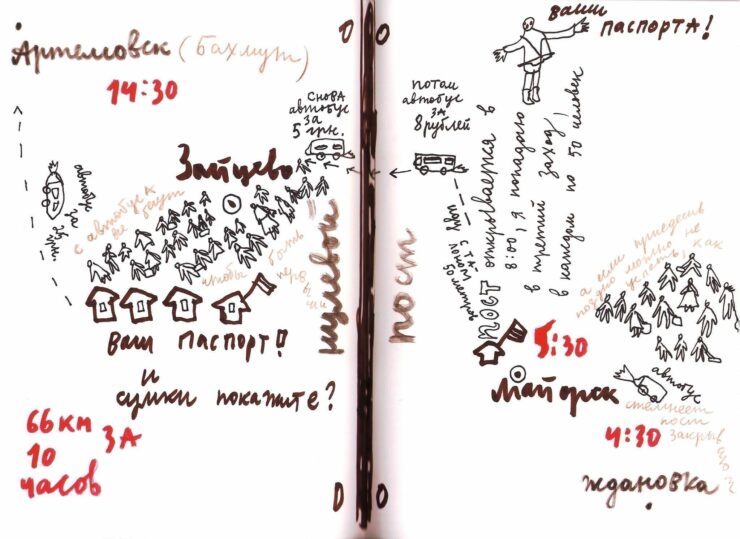 Артемовск (Бахмут)
14:30
снова
автобус
за
5 грн.
Зайцево
автобус
с автобуса
все бегут
чтобы быть
первы
ми
ваш паспорт!
и
сумки покажите?
66 км
за
10
часов
нулевой
пост
ваши
паспорта!
потом
автобус
за
8 рублей
идти с та-
лоном
50 метров
пост открывается в
8:00, я попадаю
в третий заход,
в каждом по 50 человек
а если приедешь
поздно можно не
успеть, как
5:30
Майорск
автобус
стемнеет
пост
закрыв
4:30
Ждановка